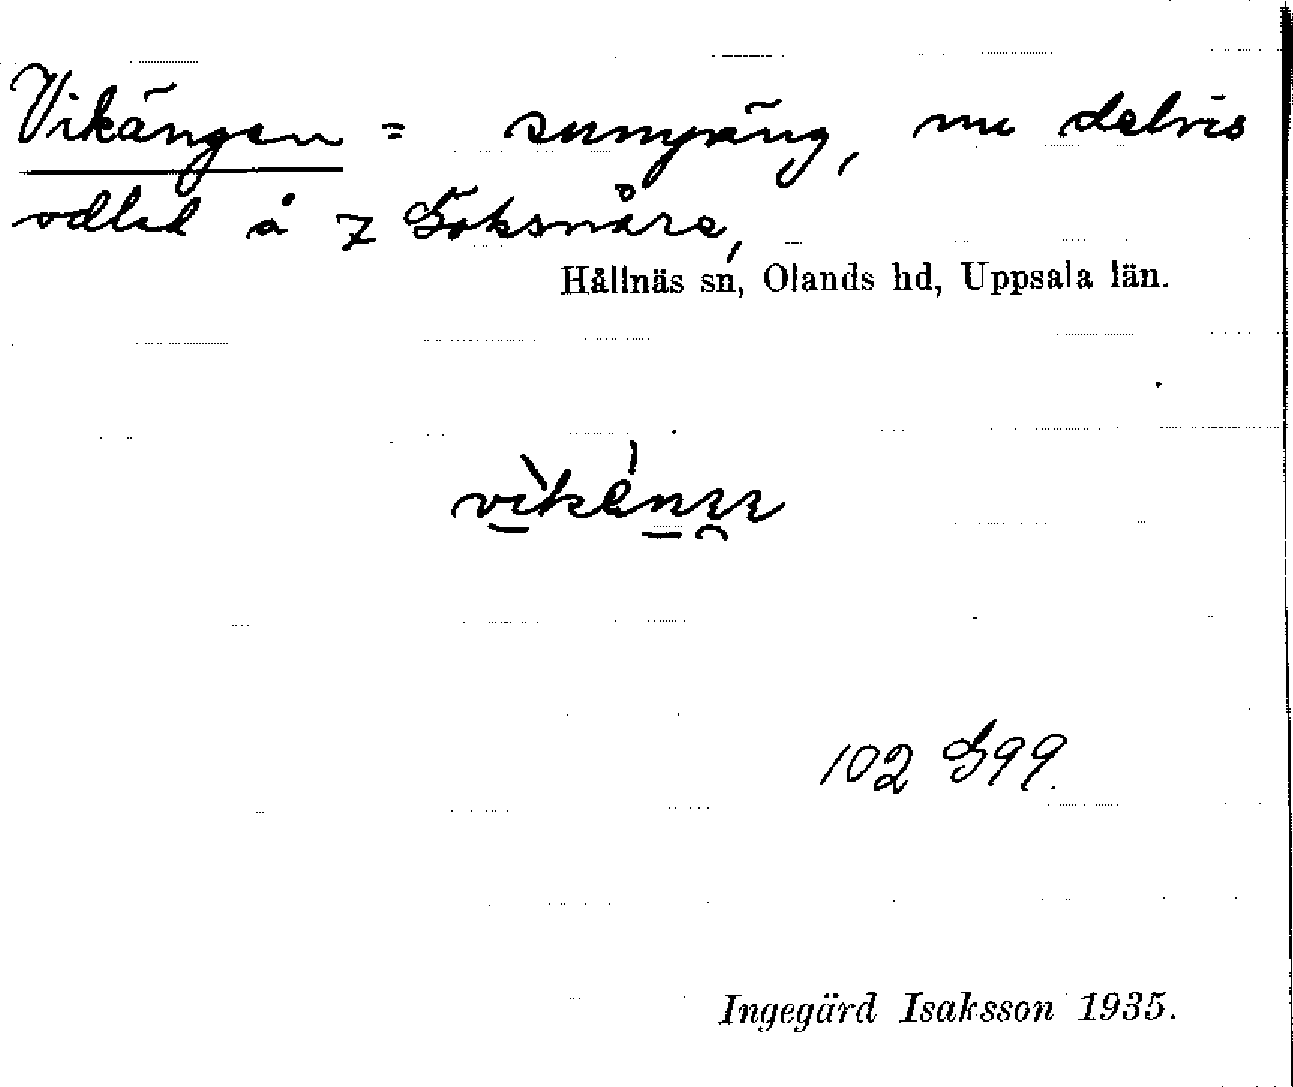 Vikängen = sumpäng, nu delvis
odlad å 7 Böksnåre,
Hållnäs sn, Olands hd, Uppsala län.
102 B99.
Ingegärd Isaksson 1935.